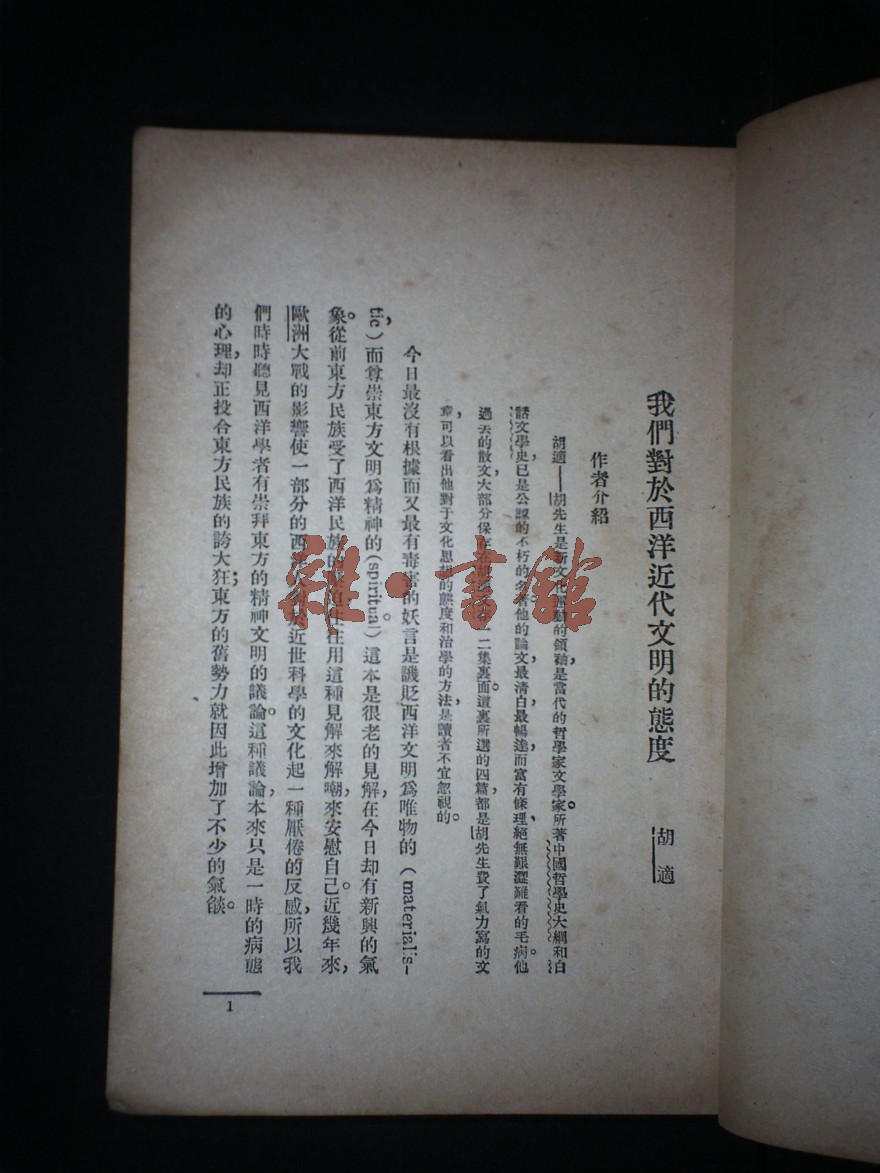 我們對於西洋近代文明的態度
胡適
作者介紹
胡適——胡先生是新文化運動的領袖,是當代的哲學家文學家。所著中國哲學史大綱和白
話文學史,已是公認的不朽的名著,他的論文最清白最暢達,而富有條理,絕無艱澀難看的毛病。他
過去的散文大部分保存在 一二集裏面。這裏所選的四篇,都是胡先生費了氣力寫的文
章,可以看出他對于文化思想的態度和治學的方法,是讀者不宜忽視的。
今日最沒有根據而又最有毒害的妖言是譏貶西洋文明爲唯物的(materialis-
tic),而尊崇東方文明爲精神的(spiritual)。這本是很老的見解,在今日却有新興的氣
象。從前東方民族受了西洋民族的壓迫,往往用這種見解來解嘲,來安慰自己。近幾年來,
歐洲大戰的影響使一部分的西洋人對於近世科學的文化起一種厭倦的反感,所以我
們時時聽見西洋學者有崇拜東方的精神文明的議論。這種議論,本來只是一時的病態
的心理,却正投合東方民族的誇大狂;東方的舊勢力就因此增加了不少的氣燄。
1
雜·書館